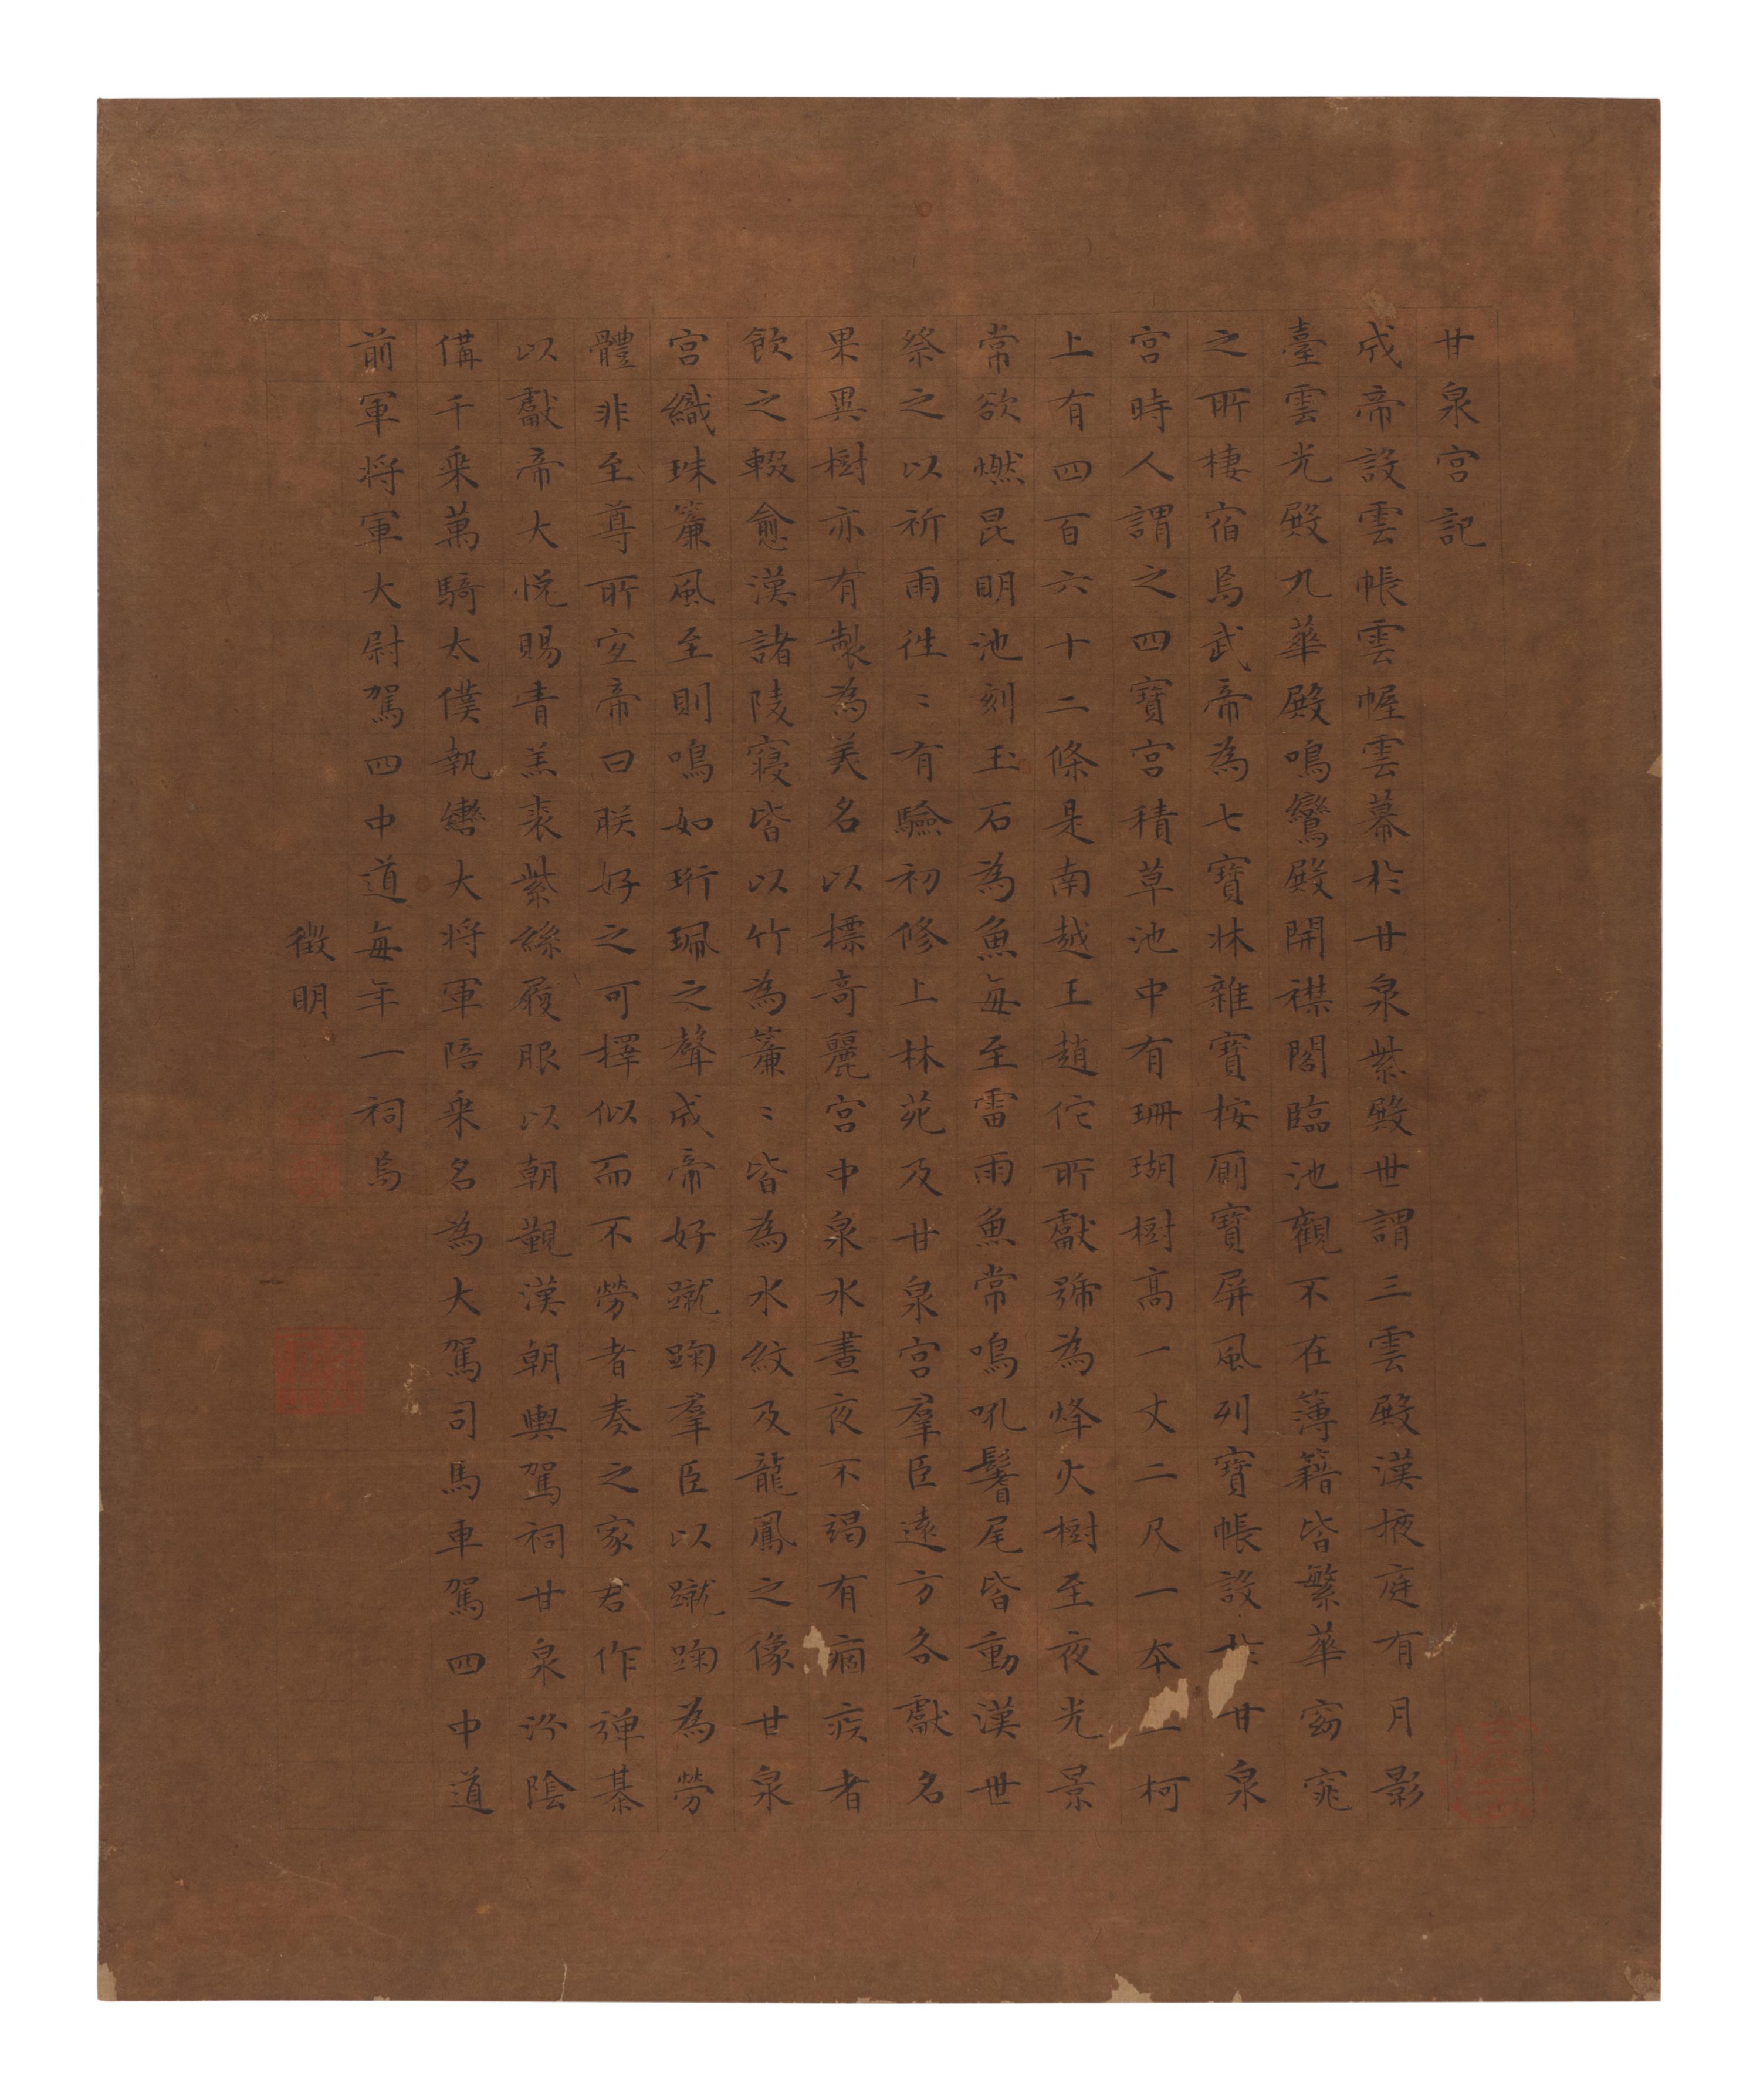 甘泉宮記
成帝設雲帳雲幄雲幕於甘泉紫殿世謂三雲殿漢掖庭有月影
臺雲光殿九華殿鳴鸞殿開襟閣臨池觀不在簿籍皆繁華窈窕
之所棲宿焉武帝為七寶牀雜寶桉厠寶屏風列寶帳設於甘泉
宮時人謂之四寶宮積草池中有珊瑚樹高一丈二尺一本二柯
上有四百六十二條是南越王趙佗所獻號為烽火樹至夜光景
常欲燃昆明池刻玉石為魚每至雷雨魚常鳴吼鬐尾皆動漢世
祭之以祈雨往〻有驗初修上林苑及甘泉宮羣臣遠方各獻名
果異樹亦有製為美名以標奇麗宮中泉水晝夜不竭有痼疾者
飲之輟愈漢諸陵寢皆以竹為簾〻皆為水紋及龍鳳之像甘泉
宮織珠簾風至則鳴如珩珮之聲成帝好蹴踘羣臣以蹴踘為勞
體非至尊所宜帝曰朕好之可擇似而不勞者奏之家君作彈棊
以獻帝大悅賜青羔裘紫絲履服以朝覲漢朝輿駕祠甘泉汾陰
偹千乘萬騎太僕執轡大將軍陪乘名為大駕司馬車駕四中道
前軍將軍大尉駕四中道每年一祠焉
徵明